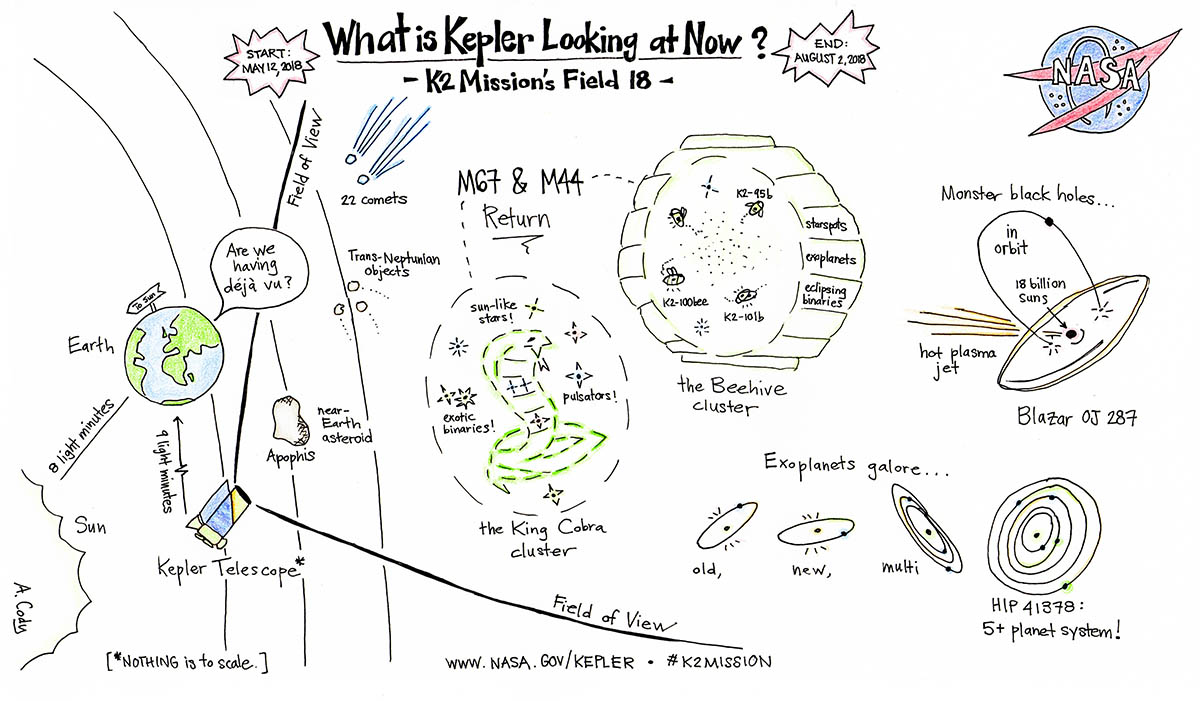 START:
MAY 12, 2018
What is Kepler Looking at Now?
- K2 Mission's Field 18 -
END:
AUGUST 2, 2018
NASA
Field of View
22 comets
Trans-Neptunian
objects
Are we
having
déjà vu?
To Sun
Earth
8 light minutes
9 light minutes
near-
Earth
asteroid
Apophis
Sun
Kepler Telescope*
A. Cody
[*NOTHING is to scale.]
Field of View
M67 & M44
Return
sun-like
stars!
pulsators!
exotic
binaries!
the King Cobra
cluster
K2-95b
K2-100bee
K2-101b
starspots
exoplanets
eclipsing
binaries
the Beehive
cluster
Monster black holes...
in
orbit
18 billion
suns
hot plasma
jet
Blazar OJ 287
Exoplanets galore...
old,
new,
multi
HIP 41378:
5+ planet system!
WWW.NASA.GOV/KEPLER • #K2MISSION